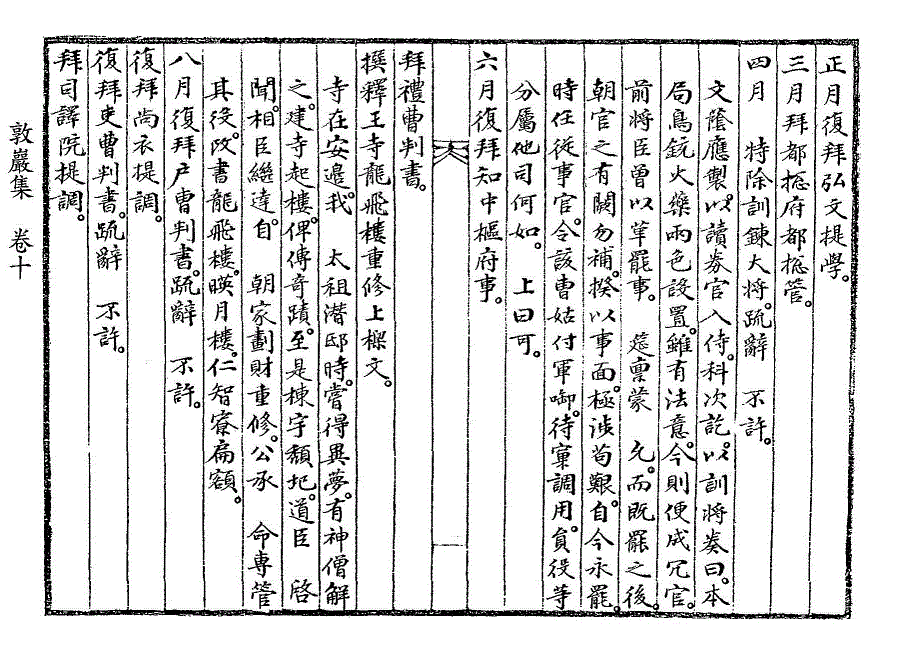 正月復拜弘文提學。
三月拜都摠府都摠管。
四月 特除訓鍊大將。疏辭 不許。
文蔭應製。以讀券官入侍。科次訖。以訓將奏曰。本
局鳥銃火藥兩色設置。雖有法意。今則便成冗官。
前將臣曾以革罷事。筵稟蒙 允。而旣罷之後。
朝官之有闕勿補。揆以事面。極涉苟艱。自今永罷。
時任從事官。令該曹姑付軍啣。待窠調用。員役等
分屬他司何如。 上曰可。
六月復拜知中樞府事。
拜禮曹判書。
撰釋王寺龍飛樓重修上樑文。
寺在安邊。我 太祖潛邸時。嘗得異夢。有神僧解
之。建寺起樓。俾傳奇蹟。至是棟宇頹圮。道臣 啓
聞。相臣繼達。自 朝家劃財重修。公承 命專管
其役。改書龍飛樓。暎月樓。仁智寮扁額。
八月復拜戶曹判書。疏辭 不許。
復拜尙衣提調。
復拜吏曹判書。疏辭 不許。
拜司譯院提調。
敦巖集 卷十